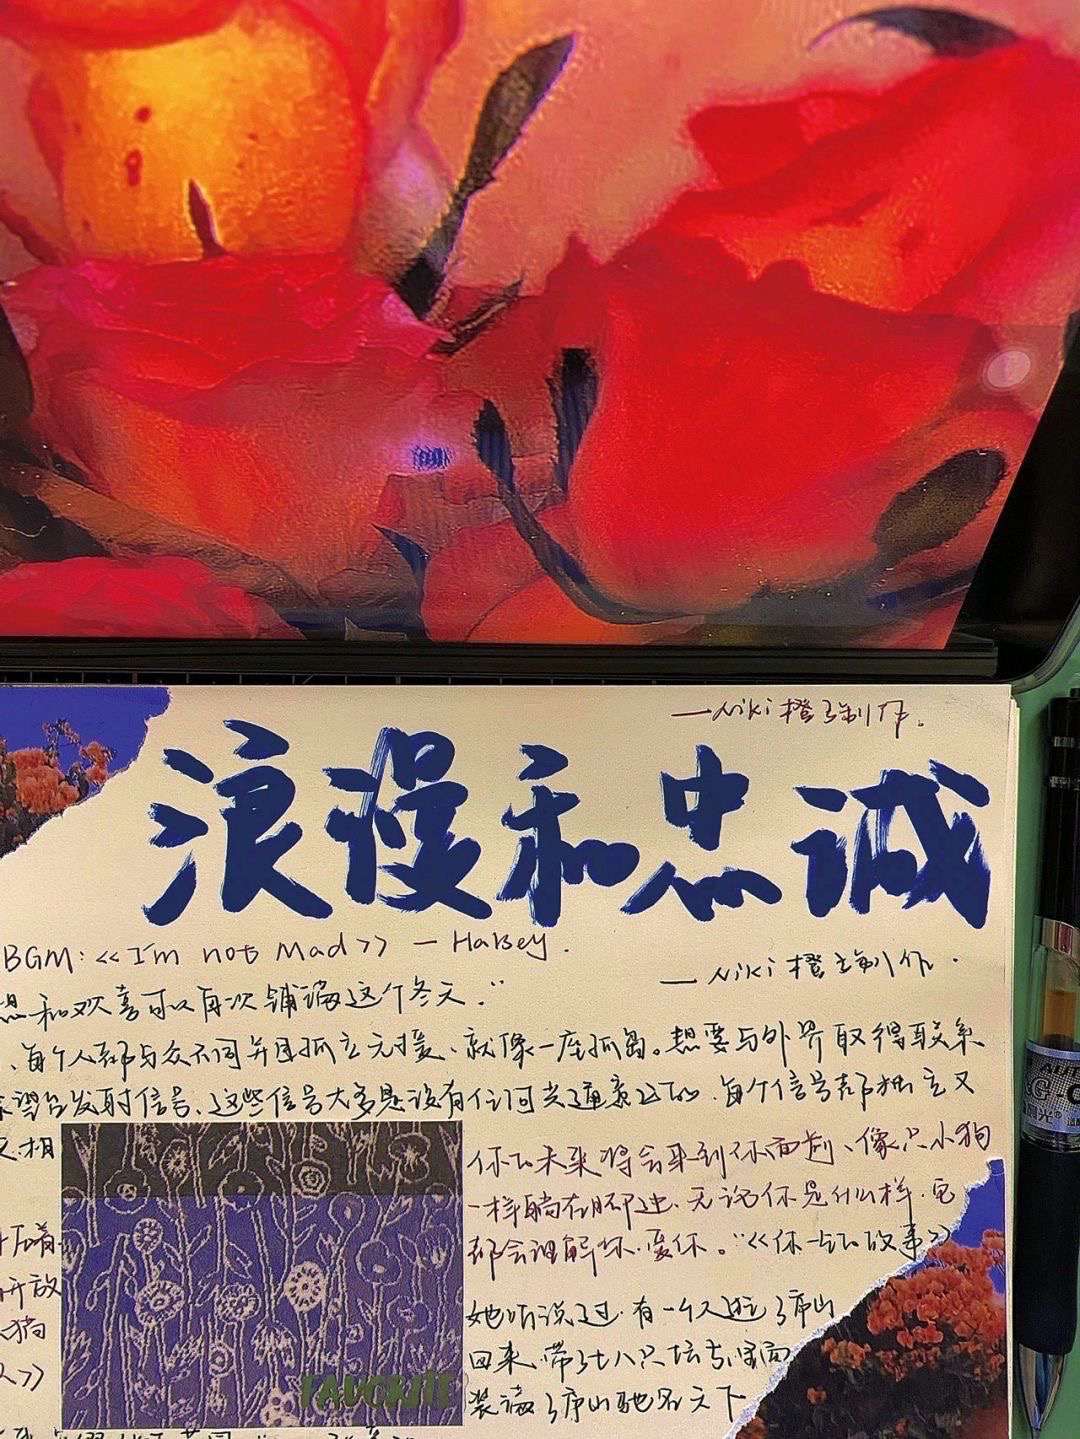 —Niki橙子制作.
浪漫和忠诚
BGM:《I'm not Mad》— Halsey.
—Niki橙子制作.
思和欢喜可以再次铺满这个冬天."
、每个人都与众不同并且孤立无援、就像一座孤岛。想要与外界取得联系
望台发射信号、这些信号大多是没有任何共通意义的、每个信号都独立又
又相
你的未来将会来到你面前、像只小狗
一样躺在脚边.无论你是什么样.它
都会理解你.爱你。"《你一生的故事》
开放
她听说过.有一个人逛了庐山
回来,带了七八只坛子,里面
装满了庐山驰名天下
FAVORITE